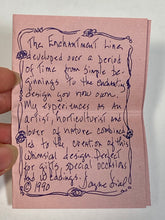 The Enchantment Line
developed over a period
of time from simple be-
ginnings to the enchanting
design you now own.
My experiences as an
artist, horticulturist and
lover of nature combined
led to the creation of this
whimsical design perfect
for gifts, special occasions
and weddings.
© 1990 Jayne